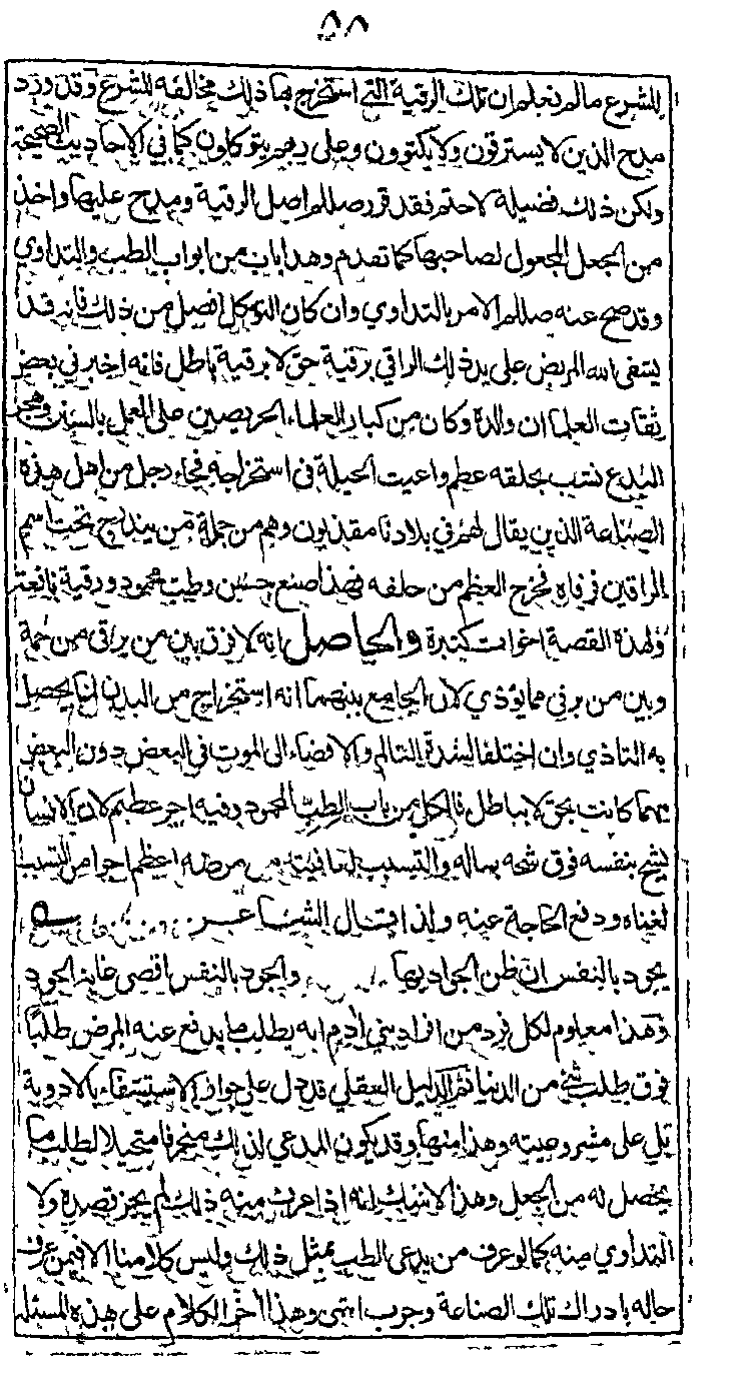 ٥٨
للشرع مالم نعلم ان تلك الرقية التي استخرج بها ذلك مخالفه للشرع وقد ورد
مدح الذين لا يسترقون ولا يكتوون وعلى ربهم يتوكلون كما في الاحاديث الصحيحة
ولكن ذلك فضيلة لا حتم فقد قرر صللم اصل الرقية ومدح عليها واخذ
من الجعل المجعول لصاحبها كما تقدم وهذا باب من ابواب الطب والتداوي
وقد صح عنه صللم الامر بالتداوي وان كان التوكل افضل من ذلك فانه قد
يشفى الله المريض على يد ذلك الراقي برقية حق لا برقية باطل فانه اخبرني بعض
ثقات العلما ان والده وكان من كبار العلماء الحريصين على العمل بالسنن وهجر
البدع نشب بحلقه عظم واعيت الحيلة في استخراجه فجاء رجل من اهل هذه
الصناعة الذين يقال لهم في بلادنا مقذيون وهم من جملة من يندرج تحت اسم
الراقين فرقاه فخرج العظم من حلقه فهذا صنع حسن وطب محمود ورقية نافعة
ولهذه القصة اخوات كثيرة والحاصل انه لا فرق بين من يرقى من حمة
وبين من يرقى مما يؤذي لان الجامع بينهما انه استخراج من البدن لما يحصل
به التاذي وان اختلفا لشدة التالم والافضاء الى الموت في البعض دون البعض
مهما كانت بحق لا بباطل فالكل من باب الطب المحمود وفيه اجر عظيم لان الانسان
يشح بنفسه فوق شحه بماله والتسبب لعافيته من مرضه اعظم اجرا من التسبب
لغناه ودفع الحاجة عنه ولذا قال الشاعر
يجود بالنفس ان ظن الجواد بها والجود بالنفس اقصى غاية الجود
وهذا معلوم لكل فرد من افراد بني ادم انه يطلب ما يدفع عنه المرض طلبا
فوق طلب شئ من الدنيا ثم الدليل العقلي قد دل على جواز الاستشفاء بالادوية
بل على مشروعيته وهذا منها وقد يكون المدعي لذلك ممخرقا متحيلا لطلب ما
يحصل له من الجعل وهذا لا شك انه اذا عرف منه ذلك لم يجز تصديقه ولا
التداوي منه كما لو عرف من يدعي الطب بمثل ذلك وليس كلامنا الا فيمن عرف
حاله بادراك تلك الصناعة وجرب انتهى وهذا اخر الكلام على هذه المسئله